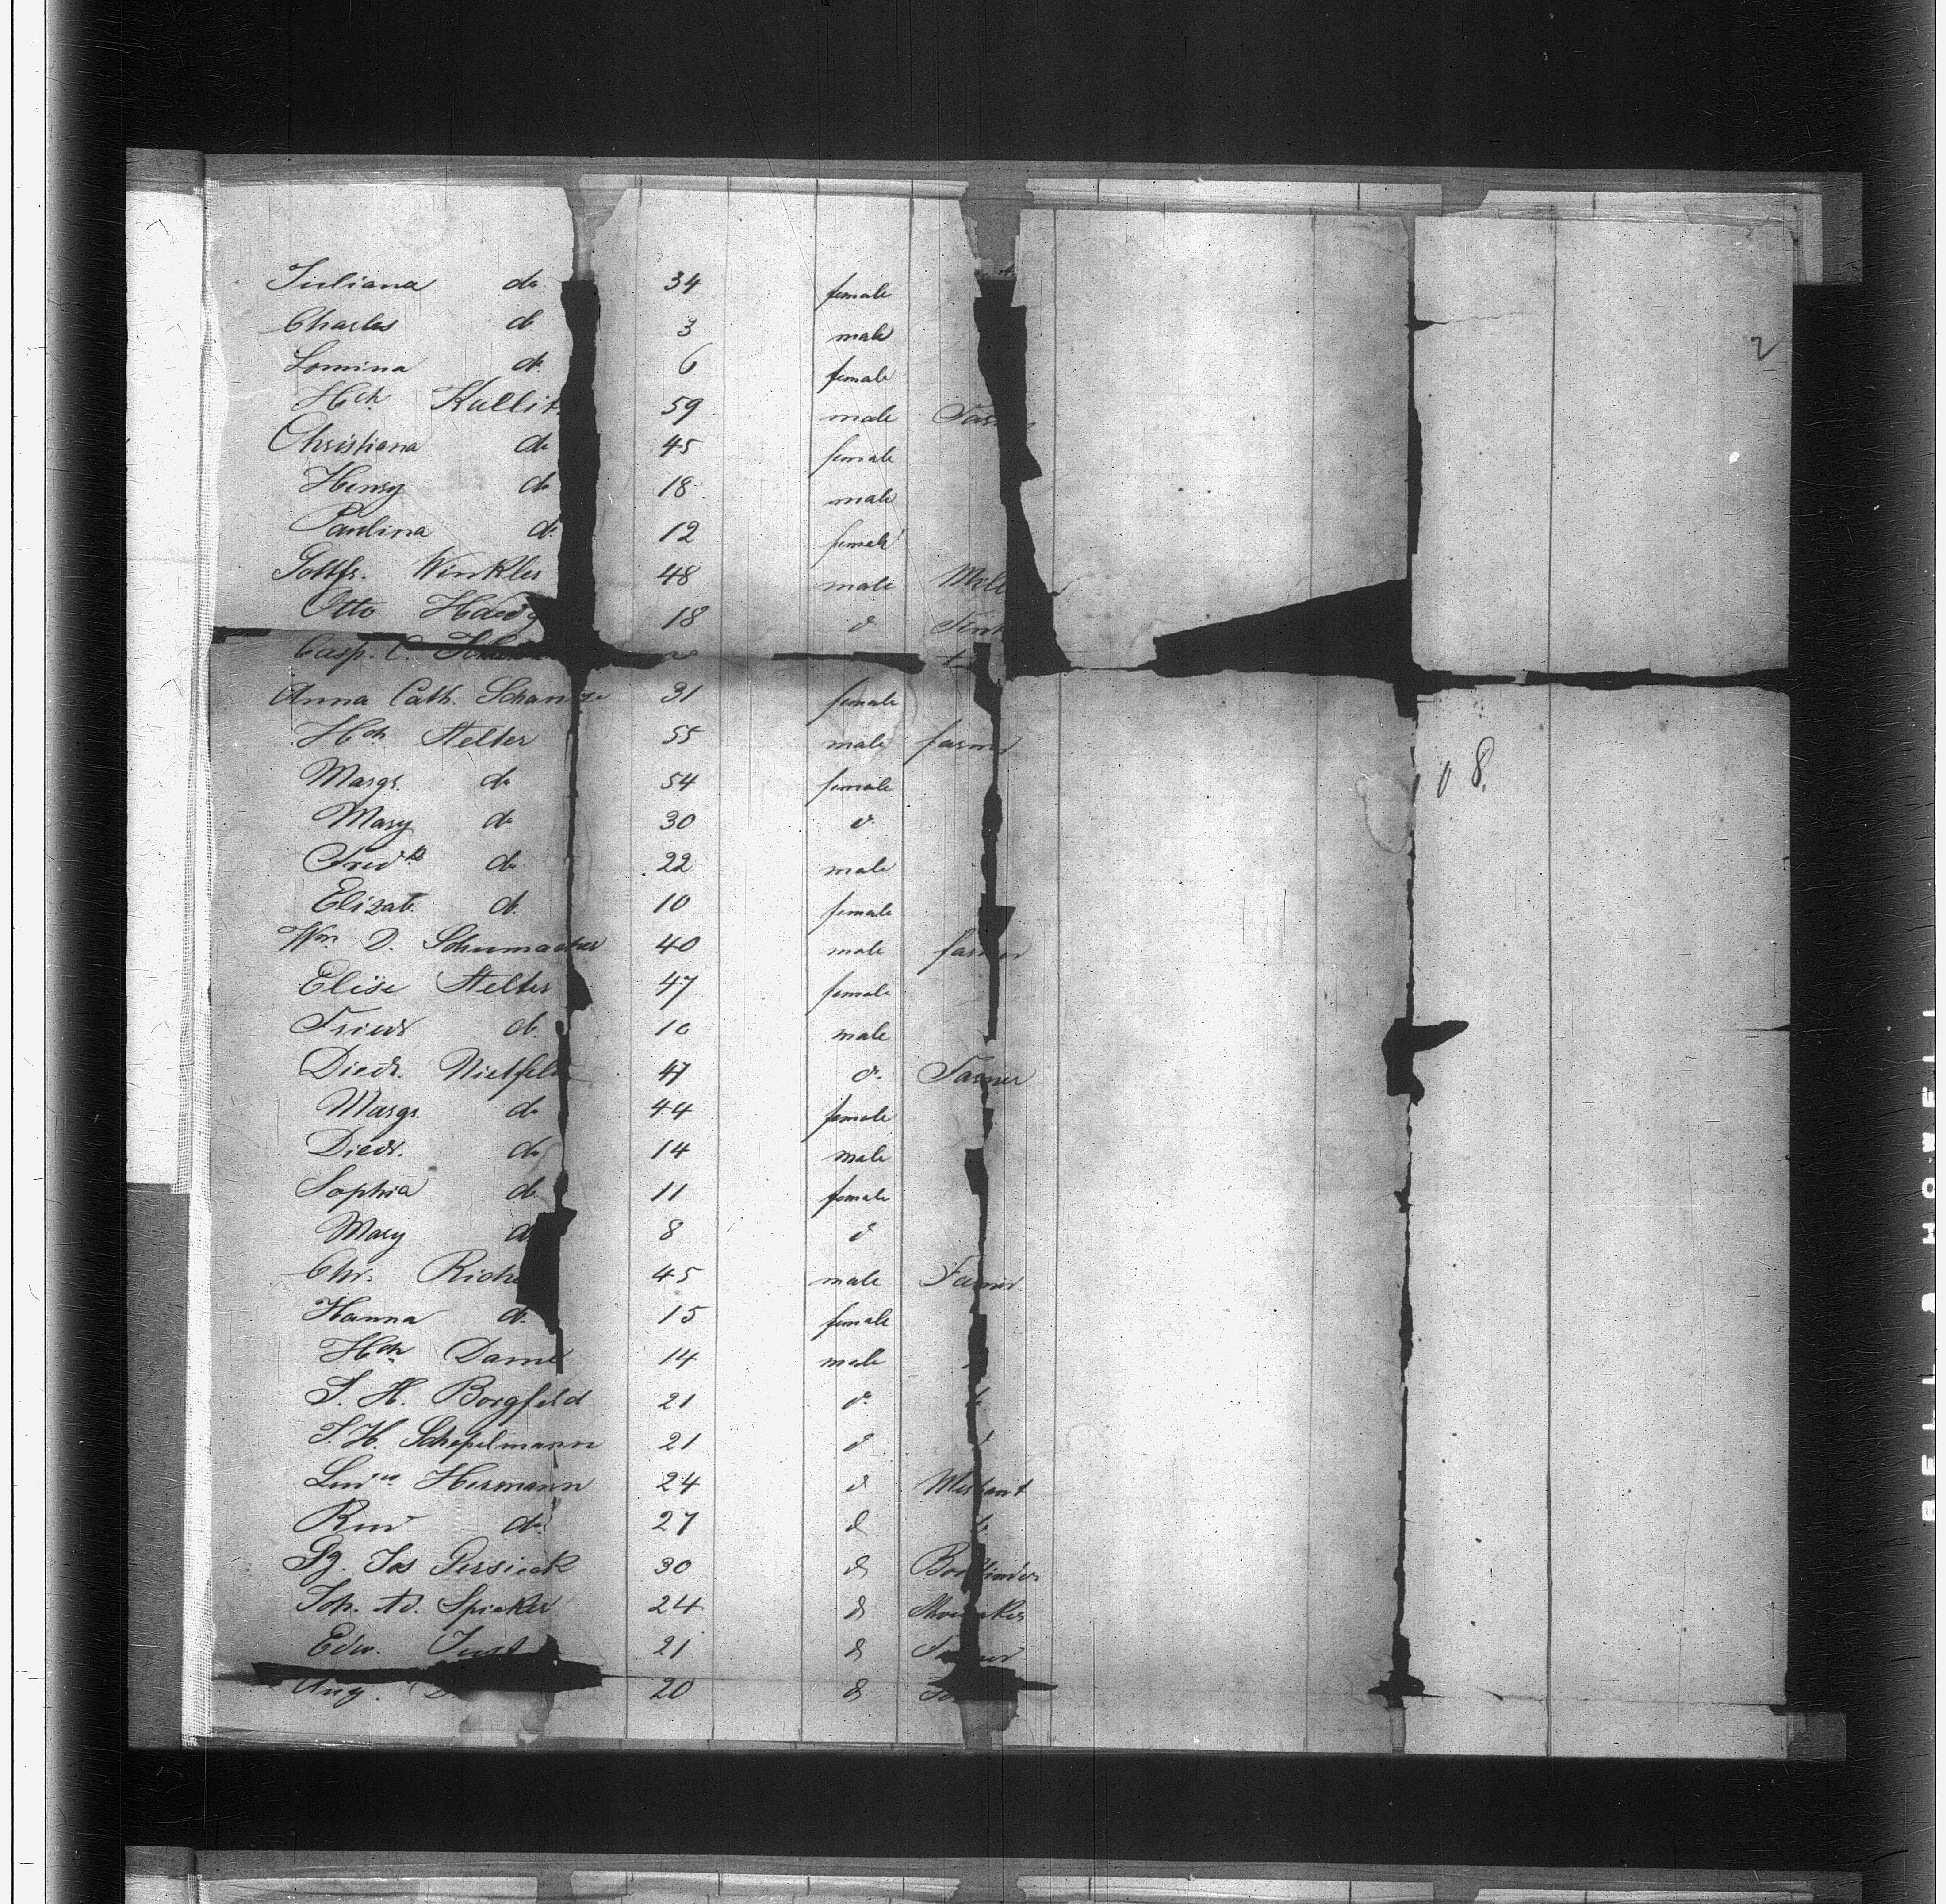 2
Juliana do 34 female
Charles do 3 male
Lomina do 6 female
Hch Kullit 59 male Farm
Christiana do 45 female
Henry do 18 male
Paulina do 12 female
Gottfr. Winkler 48 male
Otto 18 d
Casp. C.
Anna Cath. Schan 31 female
Hch Stelter 55 male farmer
Margr. do 54 female
Mary do 30 d.
Fredk do 22 male
Elizab. do 10 female
08.
Wm. D. Schumacher 40 male farmer
Elise Stelter 47 female
Friedr do 10 male
Diedr. Nietfeld 47 d. Farmer
Margr. do 44 female
Diedr. do 14 male
Sophia do 11 female
Mary do 8 d
Chr. Riche 45 male Farmer
Hanna do 15 female
Hch Dame 14 male
J. H. Borgfeld 21 do
J. H. Schepelmann 21 d
Ludw Hermann 24 d Merchant
Rud do 27 d do
Jos 30 d Bookbinder
Joh. Ad. Spieker 24 d Shoemaker
Edw. Just 21 d Farmer
Aug. 20 d
BELL & HOWELL